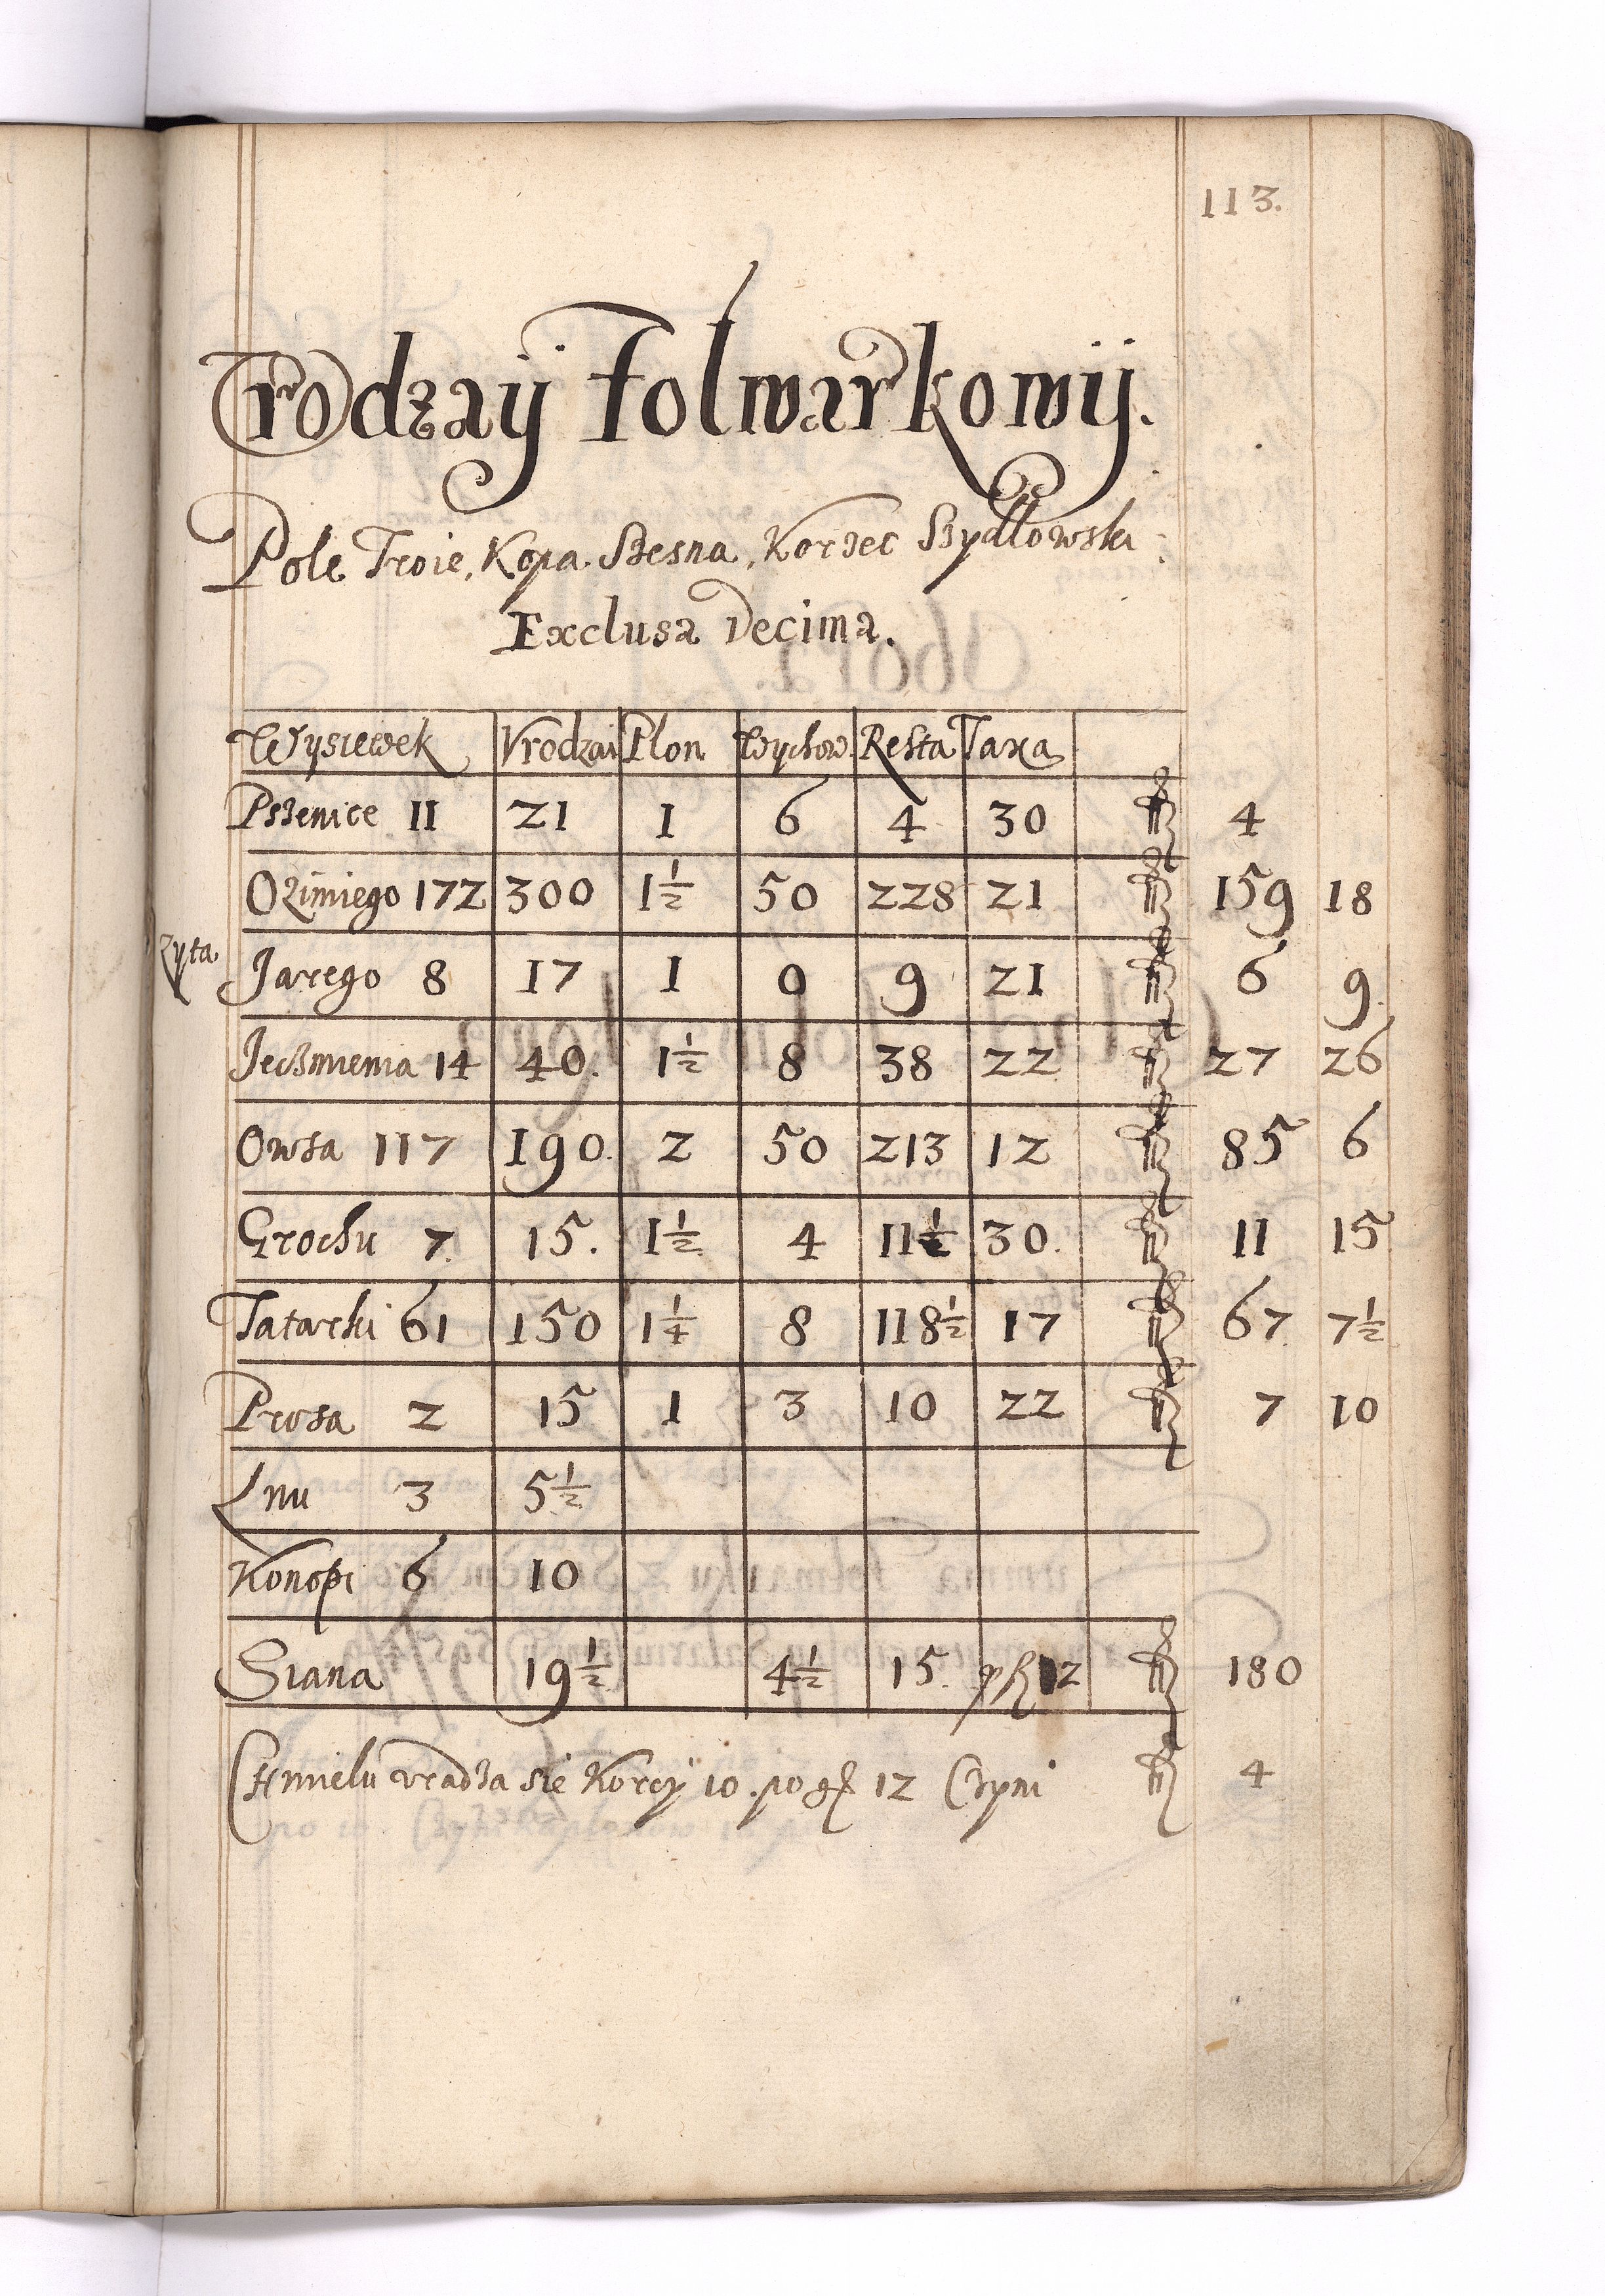 113.
Vrodzaÿ Folwarkowÿ.
Pole Troie, Kopa Szesna, Korzec Szydłowski
Exclusa Decima.
Wysiewek Vrodzai Plon Wychow. Resta Taxa
Pszenice 11 21 1 6 4 30 fl 4
Ozimiego 172 300 1½ 50 228 21 fl 159 18
Zyta
Jarego 8 17 1 0 9 21 fl 6 9
Jeczmienia 14 40. 1½ 8 38 22 fl 27 26
Owsa 117 190. 2 50 213 12 fl 85 6
Grochu 7. 15. 1½ 4 11½ 30. fl 11 15
Tatarki 61 150 1¼ 8 118½ 17 fl 67 7½
Prosa 2 15 1 3 10 22 fl 7 10
Lnu 3 5½
Konopi 6 10
Siana 19½ 4½ 15. p fl 12 fl 180
Chmielu vradza sie Korcÿ 10. po gl 12 Czyni fl 4